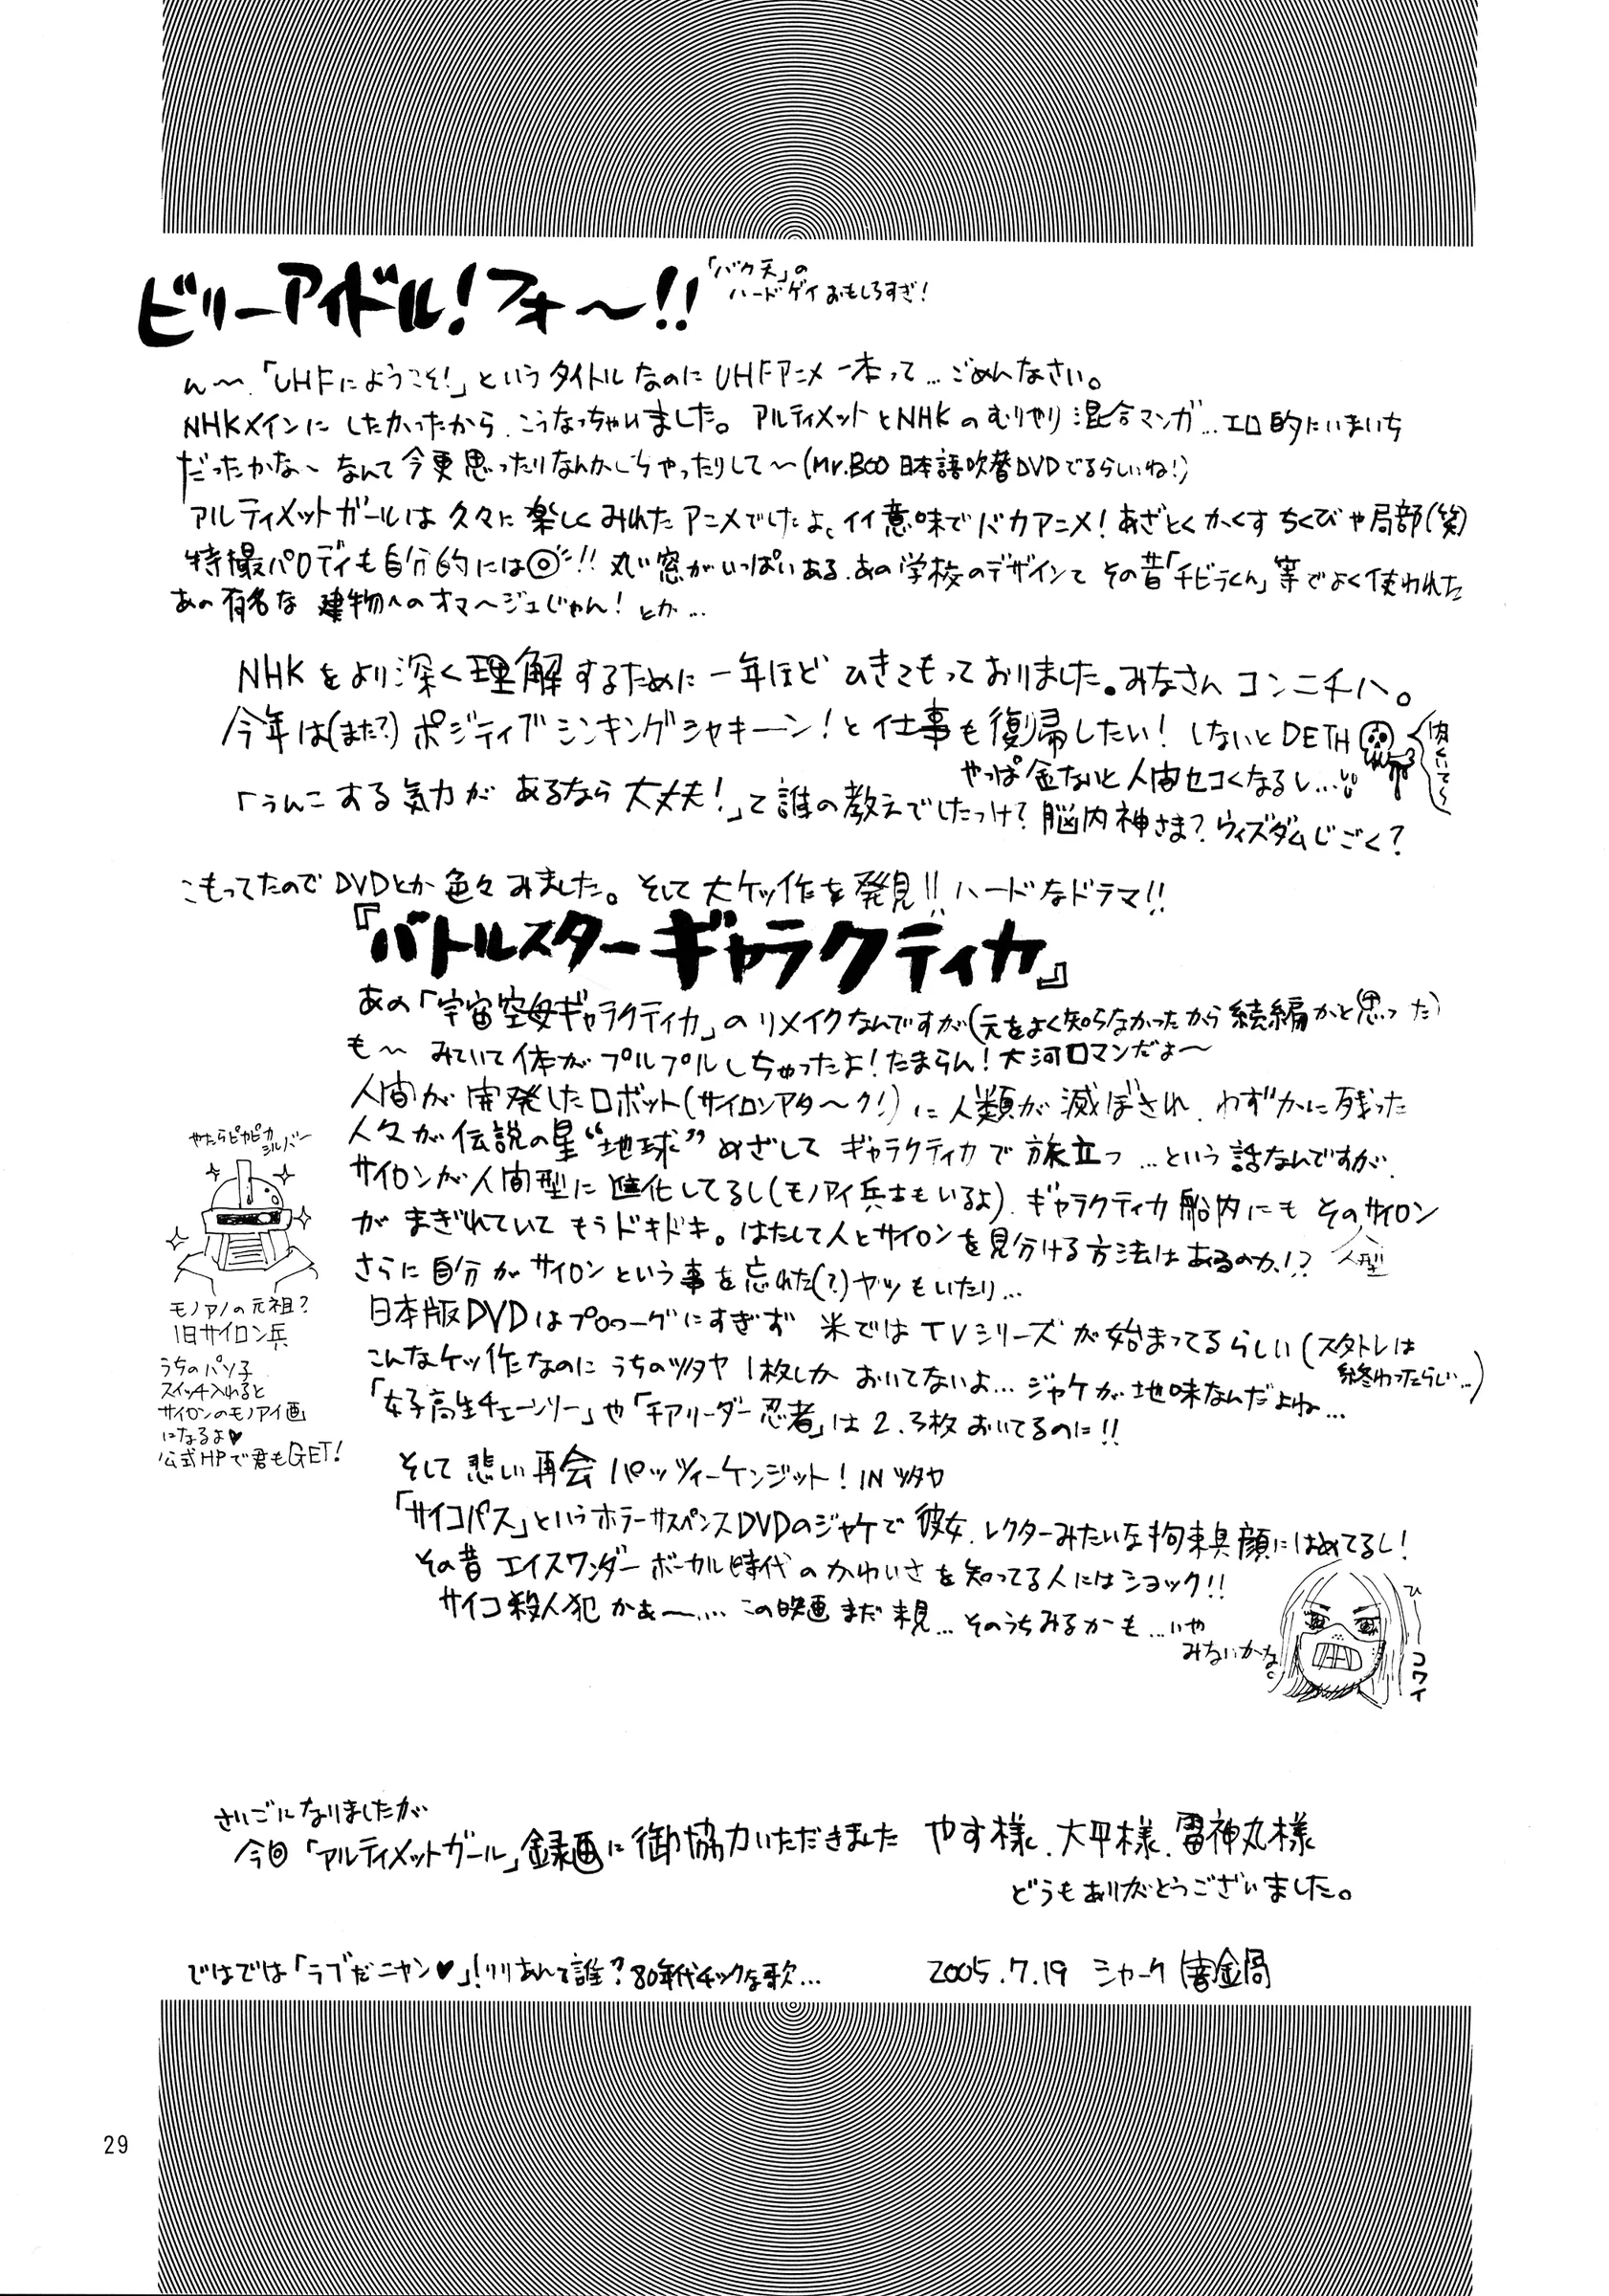 ビリーアイドル!フォ〜!!
「バク天」の
ハードゲイおもしろすぎ!
ん〜.「UHFにようこそ!」というタイトルなのにUHFアニメ一本って…ごめんなさい。
NHKメインにしたかったから.こうなっちゃいました。アルティメットとNHKのむりやり混合マンガ…エロ的にいまいち
だったかな〜なんて今更思ったりなんかしちゃったりして〜(Mr.BOO日本語吹替DVDでるらしいね!)
アルティメットガールは久々に楽しくみれたアニメでしたよ、イイ意味でバカアニメ!あざとくかくすちくびや局部(笑)
特撮パロディも自分的には◎!!丸い窓がいっぱいある.あの学校のデザインてその昔「チビラくん」等でよく使われた
あの有名な建物へのオマ〜ジュじゃん!とか…
NHKをより深く理解するために一年ほどひきこもっておりました。みなさんコンニチハ。
今年は(また?)ポジティブシンキングシャキーーン!と仕事も復帰したい!しないとDETH
肉くいて〜
やっぱ金ないと人間セコくなるし…
「うんこする気力があるなら大丈夫!」て誰の教えでしたっけ?脳内神さま?ウィズダムじごく?
こもってたのでDVDとか色々みました。そして大ケッ作を発見!!ハードなドラマ!!
『バトルスターギャラクティカ』
あの「宇宙空母ギャラクティカ」のリメイクなんですが(元をよく知らなかったから続編かと思った)
も〜みていて体がプルプルしちゃったよ!たまらん!大河ロマンだよ〜
人間が開発したロボット(サイロンアタ〜ク!)に人類が滅ぼされ.わずかに残った
人々が伝説の星“地球”めざしてギャラクティカで旅立つ…という話なんですが.
サイロンが人間型に進化してるし(モノアイ兵士もいるよ).ギャラクティカ船内にもそのサイロン
人型
がまぎれていてもうドキドキ。はたして人とサイロンを見分ける方法はあるのか!?
さらに自分がサイロンという事を忘れた(?)ヤツもいたり…
日本版DVDはプロローグにすぎず 米ではTVシリーズが始まってるらしい(スタトレは
終わったらしい…)
こんなケッ作なのにうちのツタヤ1枚しかおいてないよ…ジャケが地味なんだよね…
「女子高生チェーンソー」や「チアリーダー忍者」は2.3枚おいてるのに!!
やたらピカピカ
シルバー
モノアイの元祖?
旧サイロン兵
うちのパソ子
スイッチ入れると
サイロンのモノアイ画
になるよ♥
公式HPで君もGET!
そして悲しい再会パッツィーケンジット!INツタヤ
「サイコパス」というホラーサスペンスDVDのジャケで彼女.レクターみたいな拘束具顔にはめてるし!
その昔エイスワンダーボーカル時代のかわいさを知ってる人にはショック!!
サイコ殺人犯かぁ〜…この映画まだ未見…そのうちみるかも…いや
みないかな。
ひ――コワイ
さいごになりましたが
今回「アルティメットガール」録画に御協力いただきました やす様.大平様.雷神丸様
どうもありがとうございました。
ではでは「ラブだニャン♥」!リリあんて誰?80年代チックな歌…
2005.7.19 シャーク
29